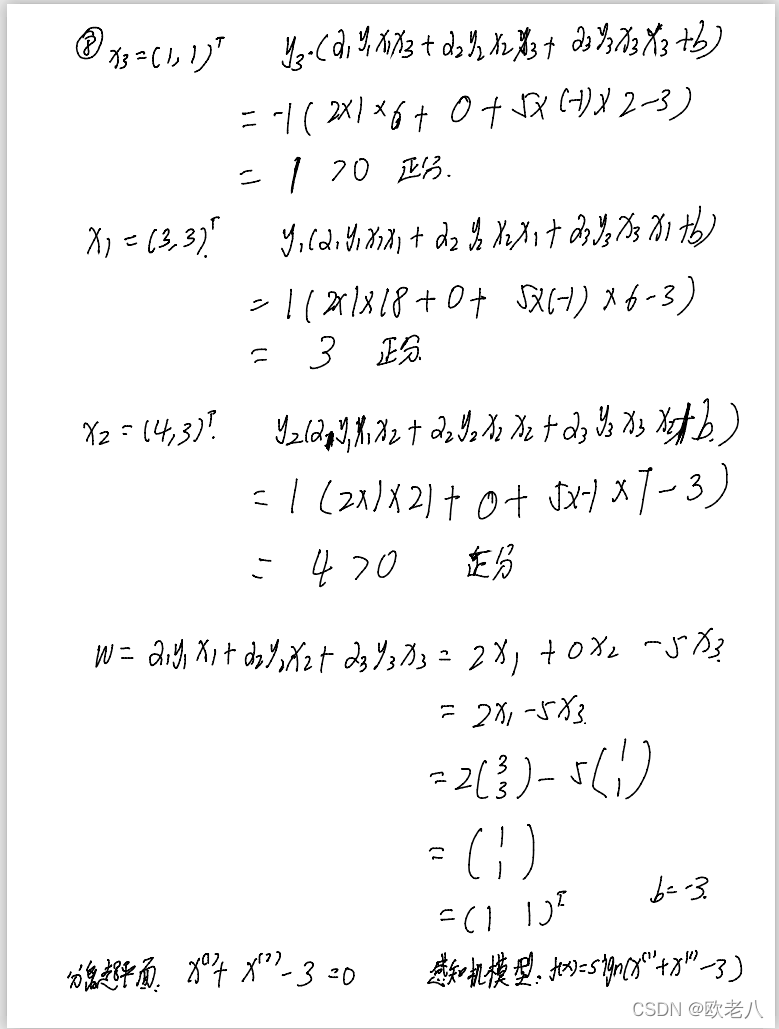 ⑧ x₃=(1,1)ᵀ y₃·(α₁y₁x₁x₃+α₂y₂x₂x₃+α₃y₃x₃x₃+b)
= -1(2×1×6+0+5×(-1)×2-3)
= 1 >0 正分.
x₁=(3,3)ᵀ. y₁(α₁y₁x₁x₁+α₂y₂x₂x₁+α₃y₃x₃x₁+b)
= 1(2×1×18+0+5×(-1)×6-3)
= 3 正分.
x₂=(4,3)ᵀ. y₂(α₁y₁x₁x₂+α₂y₂x₂x₂+α₃y₃x₃x₂+b.)
= 1(2×1×21+0+5×-1×7-3)
= 4>0 正分
W=α₁y₁x₁+α₂y₂x₂+α₃y₃x₃=2x₁+0x₂-5x₃.
=2x₁-5x₃.
=2(3 3)-5(1 1)
=(1 1)
=(1 1)ᵀ b=-3.
分离超平面. x⁽¹⁾+x⁽²⁾-3=0 感知机模型: f(x)=sign(x⁽¹⁾+x⁽²⁾-3)
CSDN @欧老八